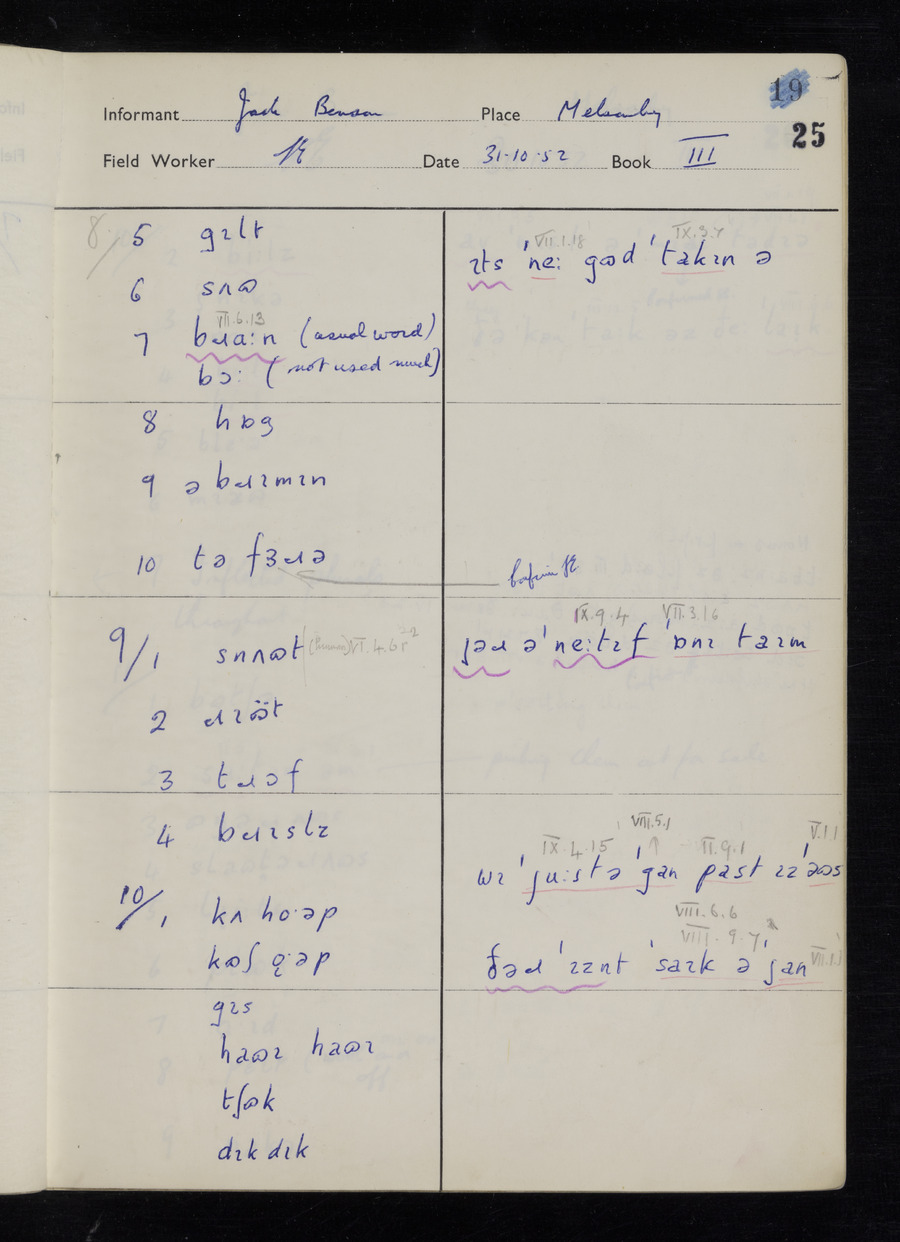 19
25
Informant Jack Benson Place Melsonby
Field Worker Date 31·10·52 Book III
8/5 gɪlt
VII.1.18 IX.3.7
ɪts ˈneː gɷd ˈtakɪn ə
6 snɷ
VII.6.13
7 bɹaːn (usual word)
bɔː (not used much)
8 hɒg
9 ə bɹɪmɪn
10 tə fɜɹə
9/1 snʌɷt (human) VI.4.6
IX.9.4 VII.3.16
jəɹ əˈneːtɪf ˈɒnɪ taɪm
2 ɹɪɷ̈t
3 tɹɔf
4 bɹɪslɪ
VIII.5.1
IX.4.15 II.9.1 V.1.1
wɪ ˈjuːstə ˈgan past ɪɪˈaɷs
10/1 kʌ hoˑəp
VIII.6.6
VIII.9.7
kɷʃ ɷˑəp
ðəɹ ˈɪɪnt ˈsaɪk ə ˈjan
gɪs
haɷɪ haɷɪ
tʃɷk
dɪk dɪk